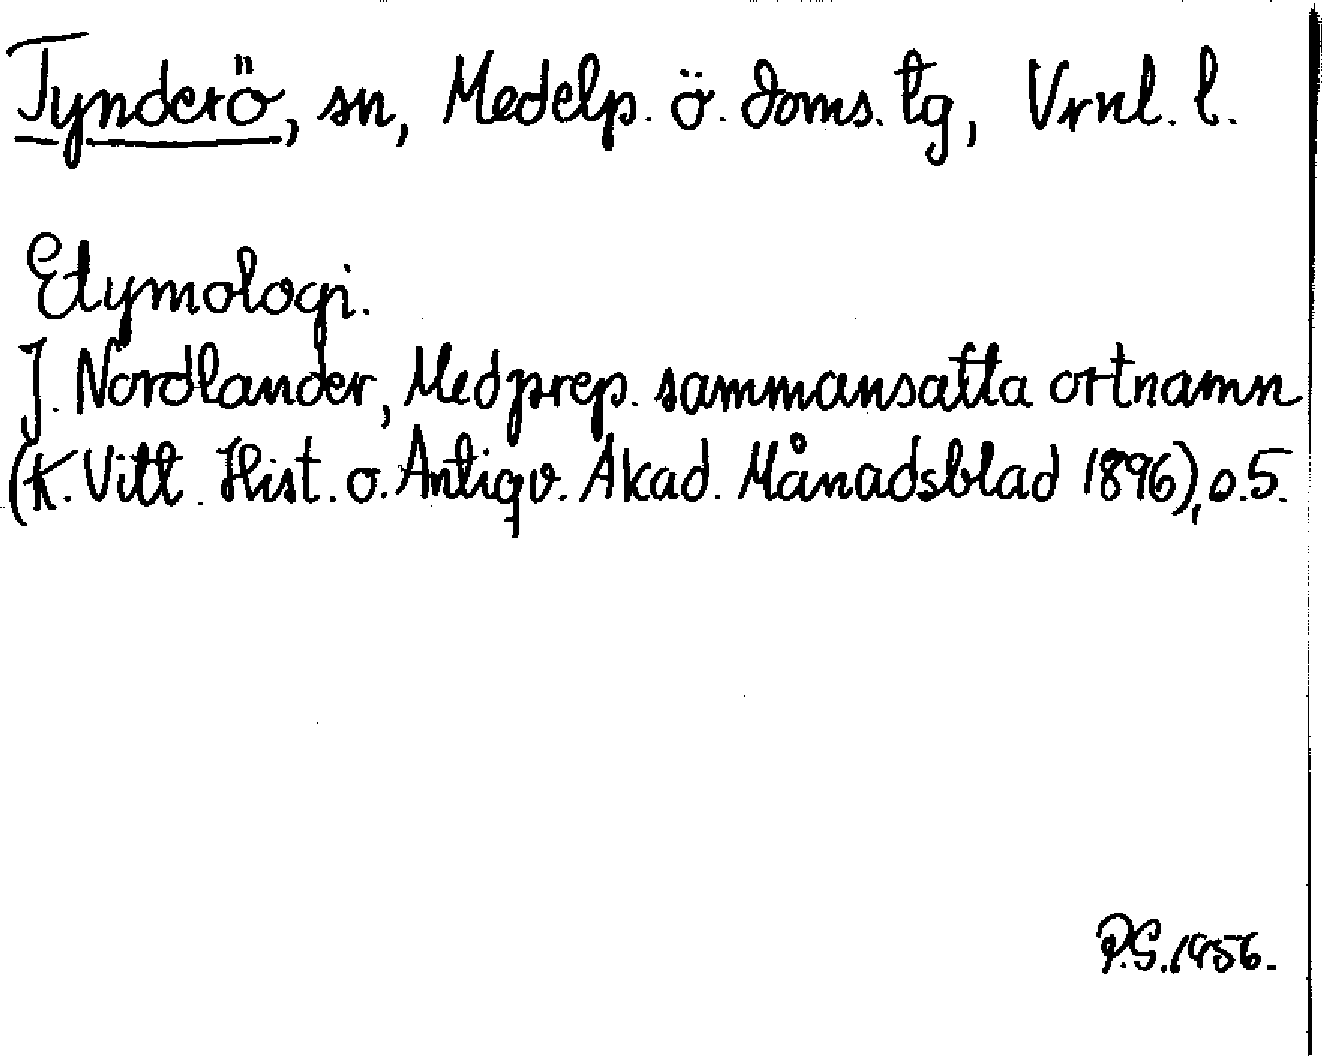 Tynderö, sn, Medelp. ö. doms. tg, Vrnl. l.
Etymologi.
J. Nordlander, Med prep. sammansatta ortnamn
(K. Vitt. Hist. o. Antiqv. Akad. Månadsblad 1896), s. 5.
P.G. 1956.